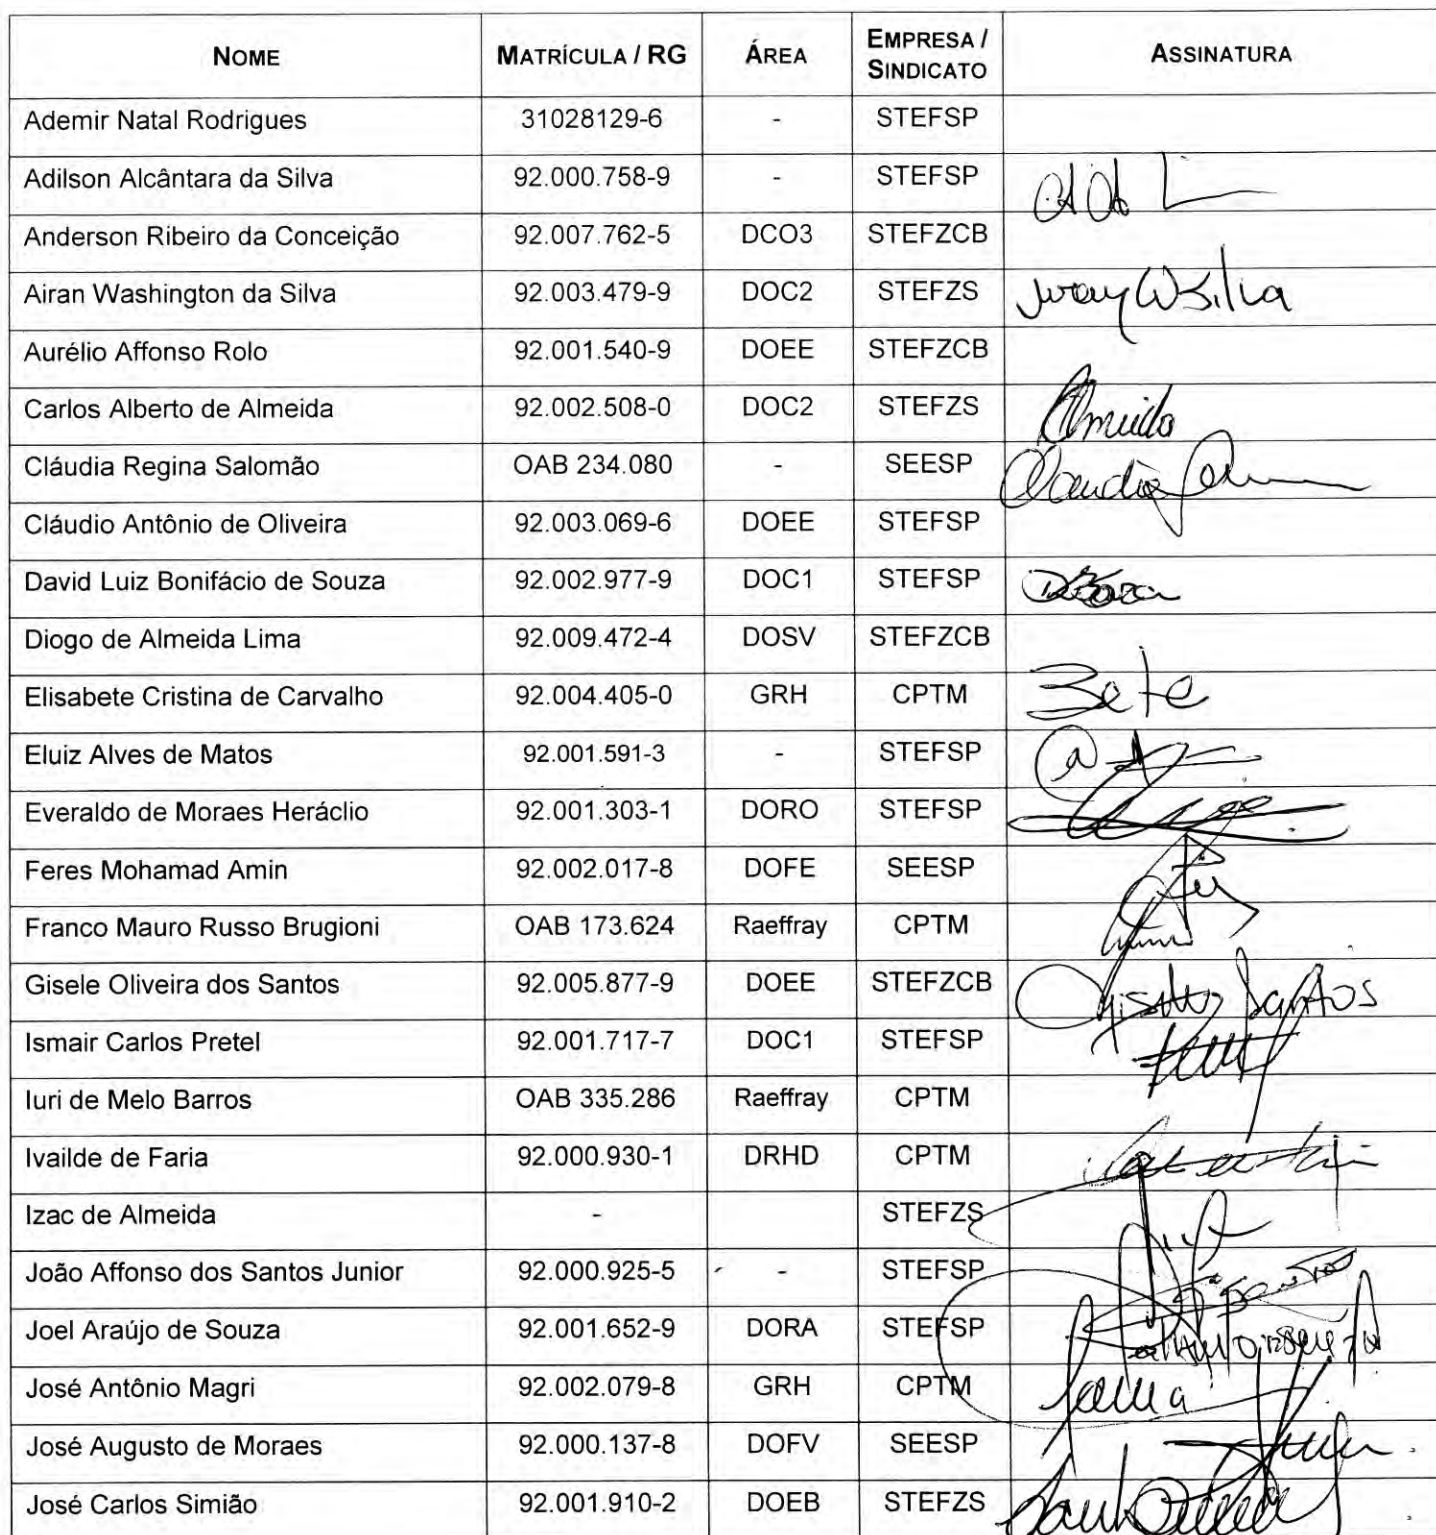 NOME MATRÍCULA / RG ÁREA EMPRESA / SINDICATO ASSINATURA
Ademir Natal Rodrigues 31028129-6 - STEFSP
Adilson Alcântara da Silva 92.000.758-9 - STEFSP
Anderson Ribeiro da Conceição 92.007.762-5 DCO3 STEFZCB
Airan Washington da Silva 92.003.479-9 DOC2 STEFZS
Aurélio Affonso Rolo 92.001.540-9 DOEE STEFZCB
Carlos Alberto de Almeida 92.002.508-0 DOC2 STEFZS Almeida
Cláudia Regina Salomão OAB 234.080 - SEESP Claudia
Cláudio Antônio de Oliveira 92.003.069-6 DOEE STEFSP
David Luiz Bonifácio de Souza 92.002.977-9 DOC1 STEFSP
Diogo de Almeida Lima 92.009.472-4 DOSV STEFZCB
Elisabete Cristina de Carvalho 92.004.405-0 GRH CPTM Bete
Eluiz Alves de Matos 92.001.591-3 - STEFSP
Everaldo de Moraes Heráclio 92.001.303-1 DORO STEFSP
Feres Mohamad Amin 92.002.017-8 DOFE SEESP
Franco Mauro Russo Brugioni OAB 173.624 Raeffray CPTM
Gisele Oliveira dos Santos 92.005.877-9 DOEE STEFZCB Santos
Ismair Carlos Pretel 92.001.717-7 DOC1 STEFSP
Iuri de Melo Barros OAB 335.286 Raeffray CPTM
Ivailde de Faria 92.000.930-1 DRHD CPTM
Izac de Almeida - STEFZS
João Affonso dos Santos Junior 92.000.925-5 - STEFSP
Joel Araújo de Souza 92.001.652-9 DORA STEFSP
José Antônio Magri 92.002.079-8 GRH CPTM
José Augusto de Moraes 92.000.137-8 DOFV SEESP
José Carlos Simião 92.001.910-2 DOEB STEFZS